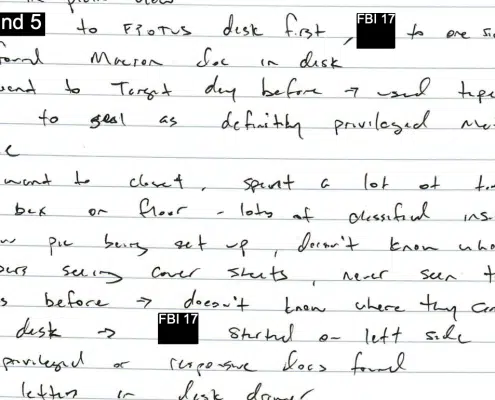 nd 5 to FPOTUS desk first, FBI 17 to one si
found Macron doc in desk
went to Target day before → used tape
to seal as definitely privileged
went to closet, spent a lot of
box on floor - lots of classified ins
pic being set up, doesn't know who
seeing cover sheets, never seen t
s before → doesn't know where they ca
desk → FBI 17 started on left side
privileged or responsive docs found
letter in desk drawer